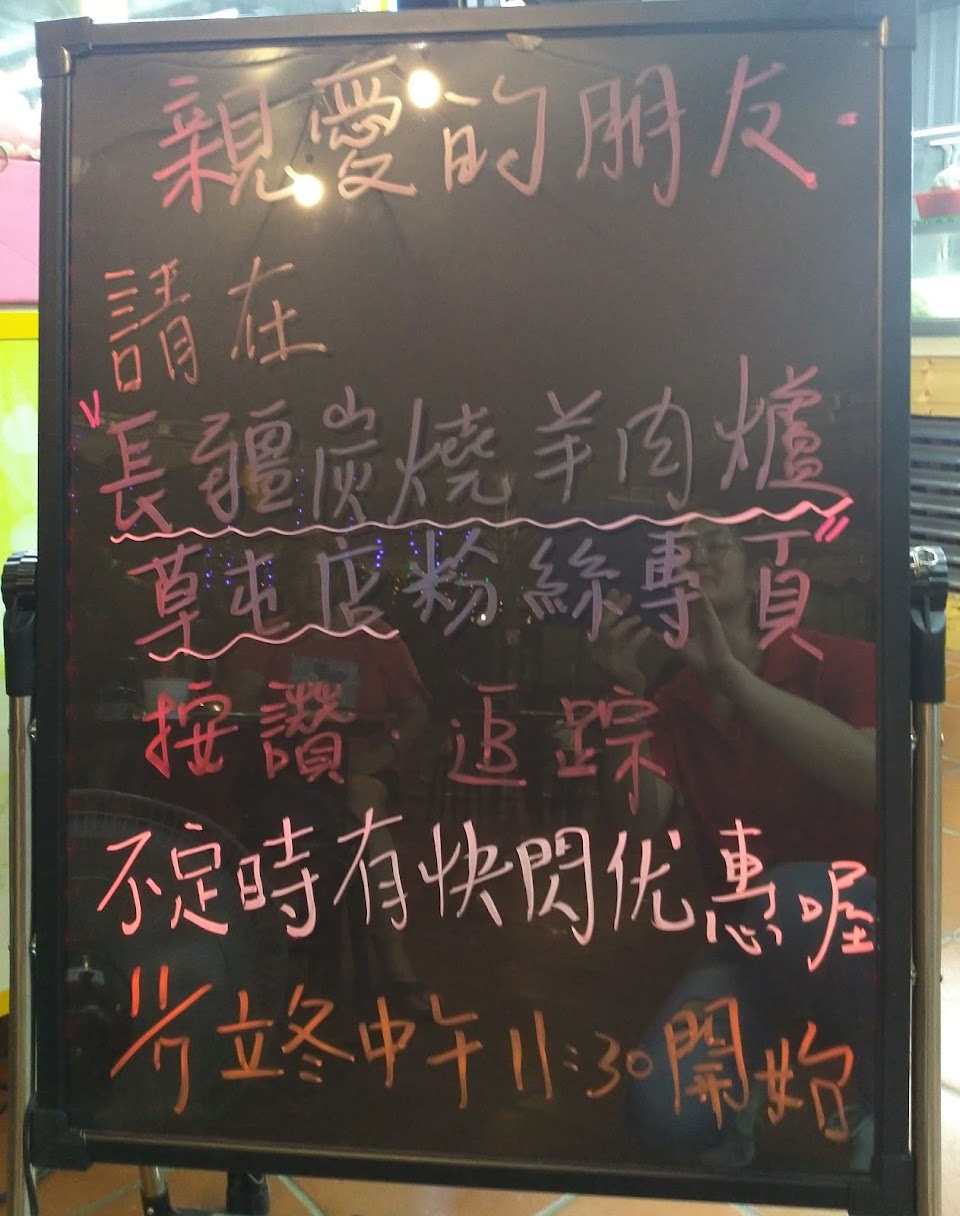 親愛的朋友.
請在
"長疆炭燒羊肉爐"
草屯店粉絲專頁
按讚.追踪
不定時有快閃优惠喔
11/7立冬中午11:30開始